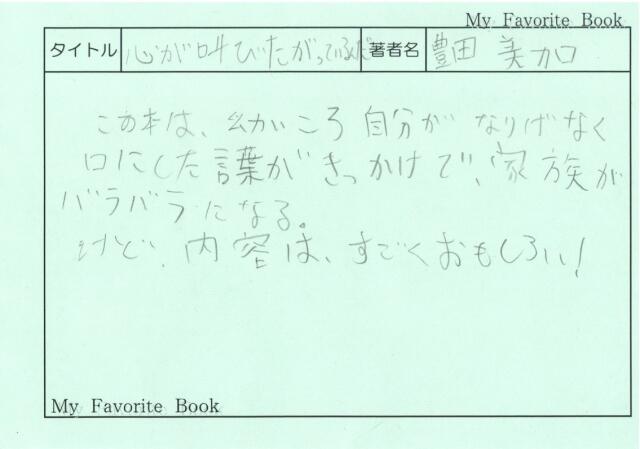 My Favorite Book
タイトル 心が叫びたがっているんだ 著者名 豊田 美加
この本は、幼いころ自分がなりげなく
口にした言葉がきっかけで、家族が
バラバラになる。
けど、内容は、すごくおもしろい!
My Favorite Book